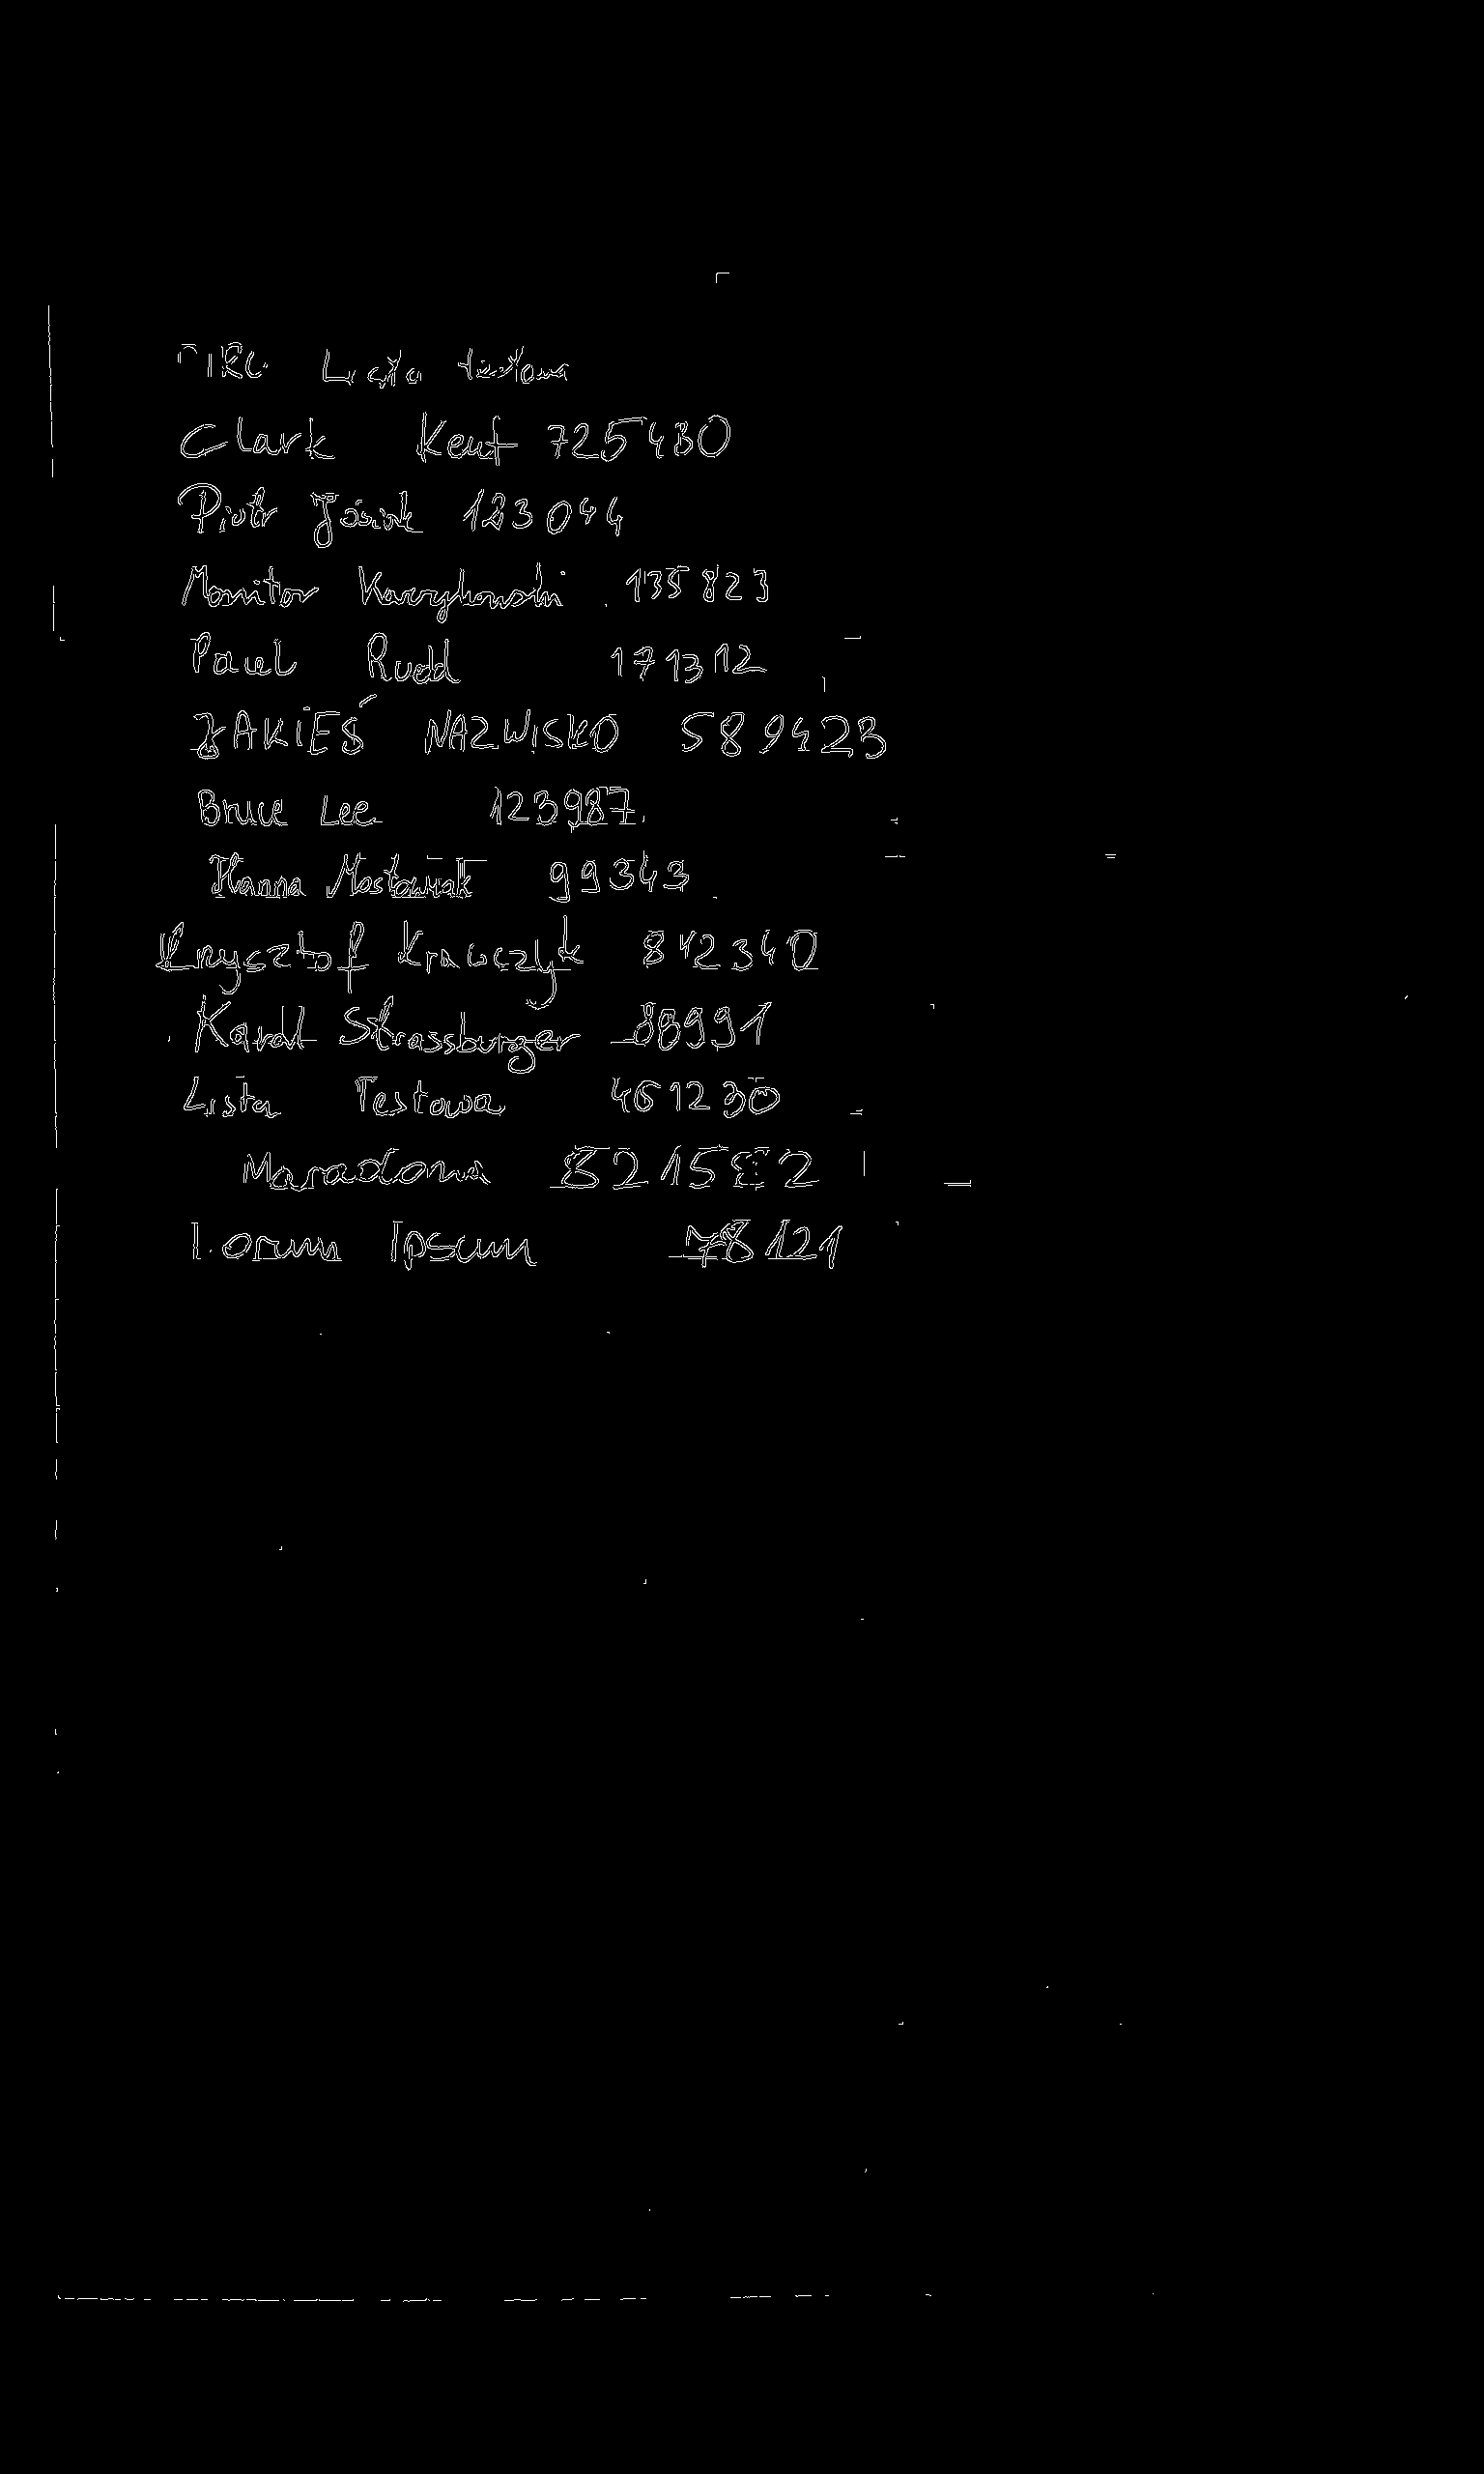 Lista testowa
Clark Kent 725430
Piotr Jósiak 123044
Monitor 135823
Paul Rudd 171312
JAKIEŚ NAZWISKO 589423
Bruce Lee 123987
Hanna Mostowiak 99343
Krzysztof Krawczyk 842340
Karol Strassburger 88991
Lista Testowa 461230
Maradona 821582
Lorum Ipsum 78121